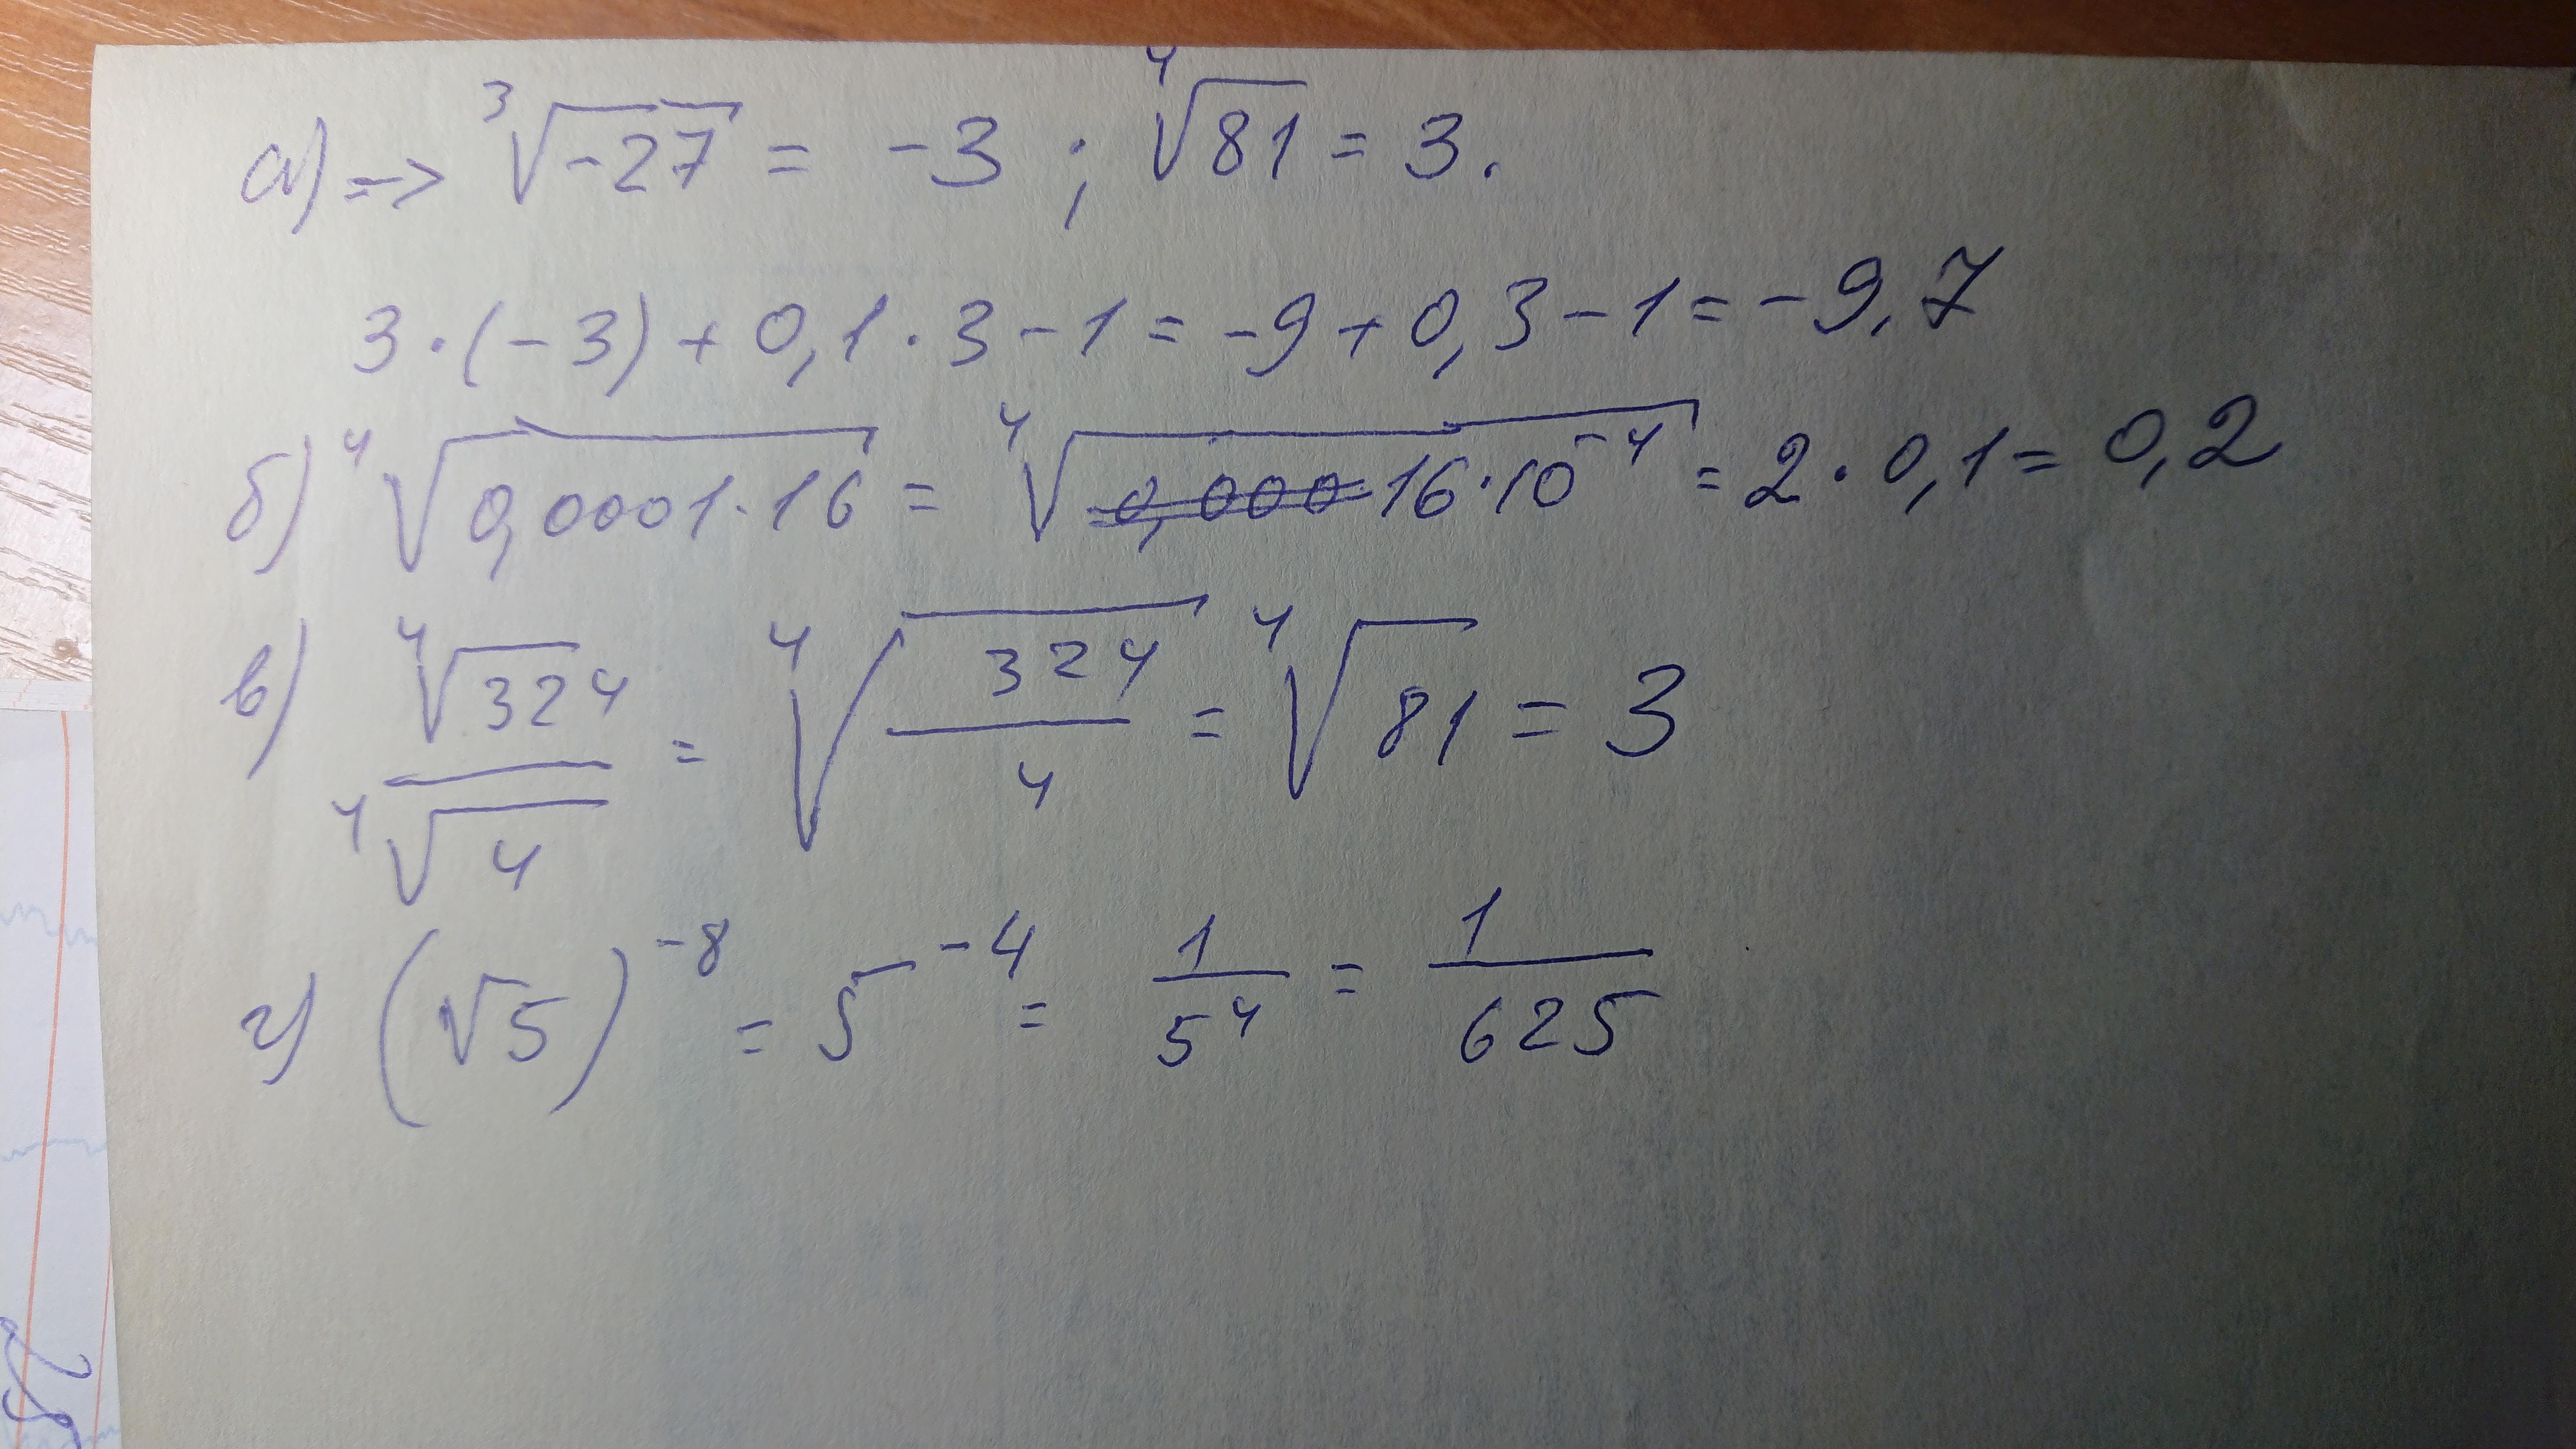 а) => ∛-27 = -3 ; ∜81 = 3.
3·(-3)+0,1·3-1=-9+0,3-1=-9,7
б) ∜0,0001·16 = ∜0,000 16·10⁻⁴ = 2·0,1=0,2
в) ∜324 / ∜4 = ∜324/4 = ∜81 = 3
г) (√5)⁻⁸ = 5⁻⁴ = 1/5⁴ = 1/625